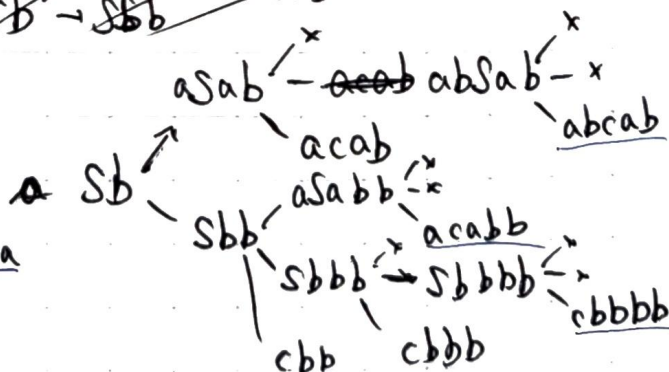 b → Sbb
aSab — acab abSab — x
abcab
acab
Sb
aSabb
Sbb
acabb
a
Sbbb → Sbbbb
cbbbb
cbb cbbb